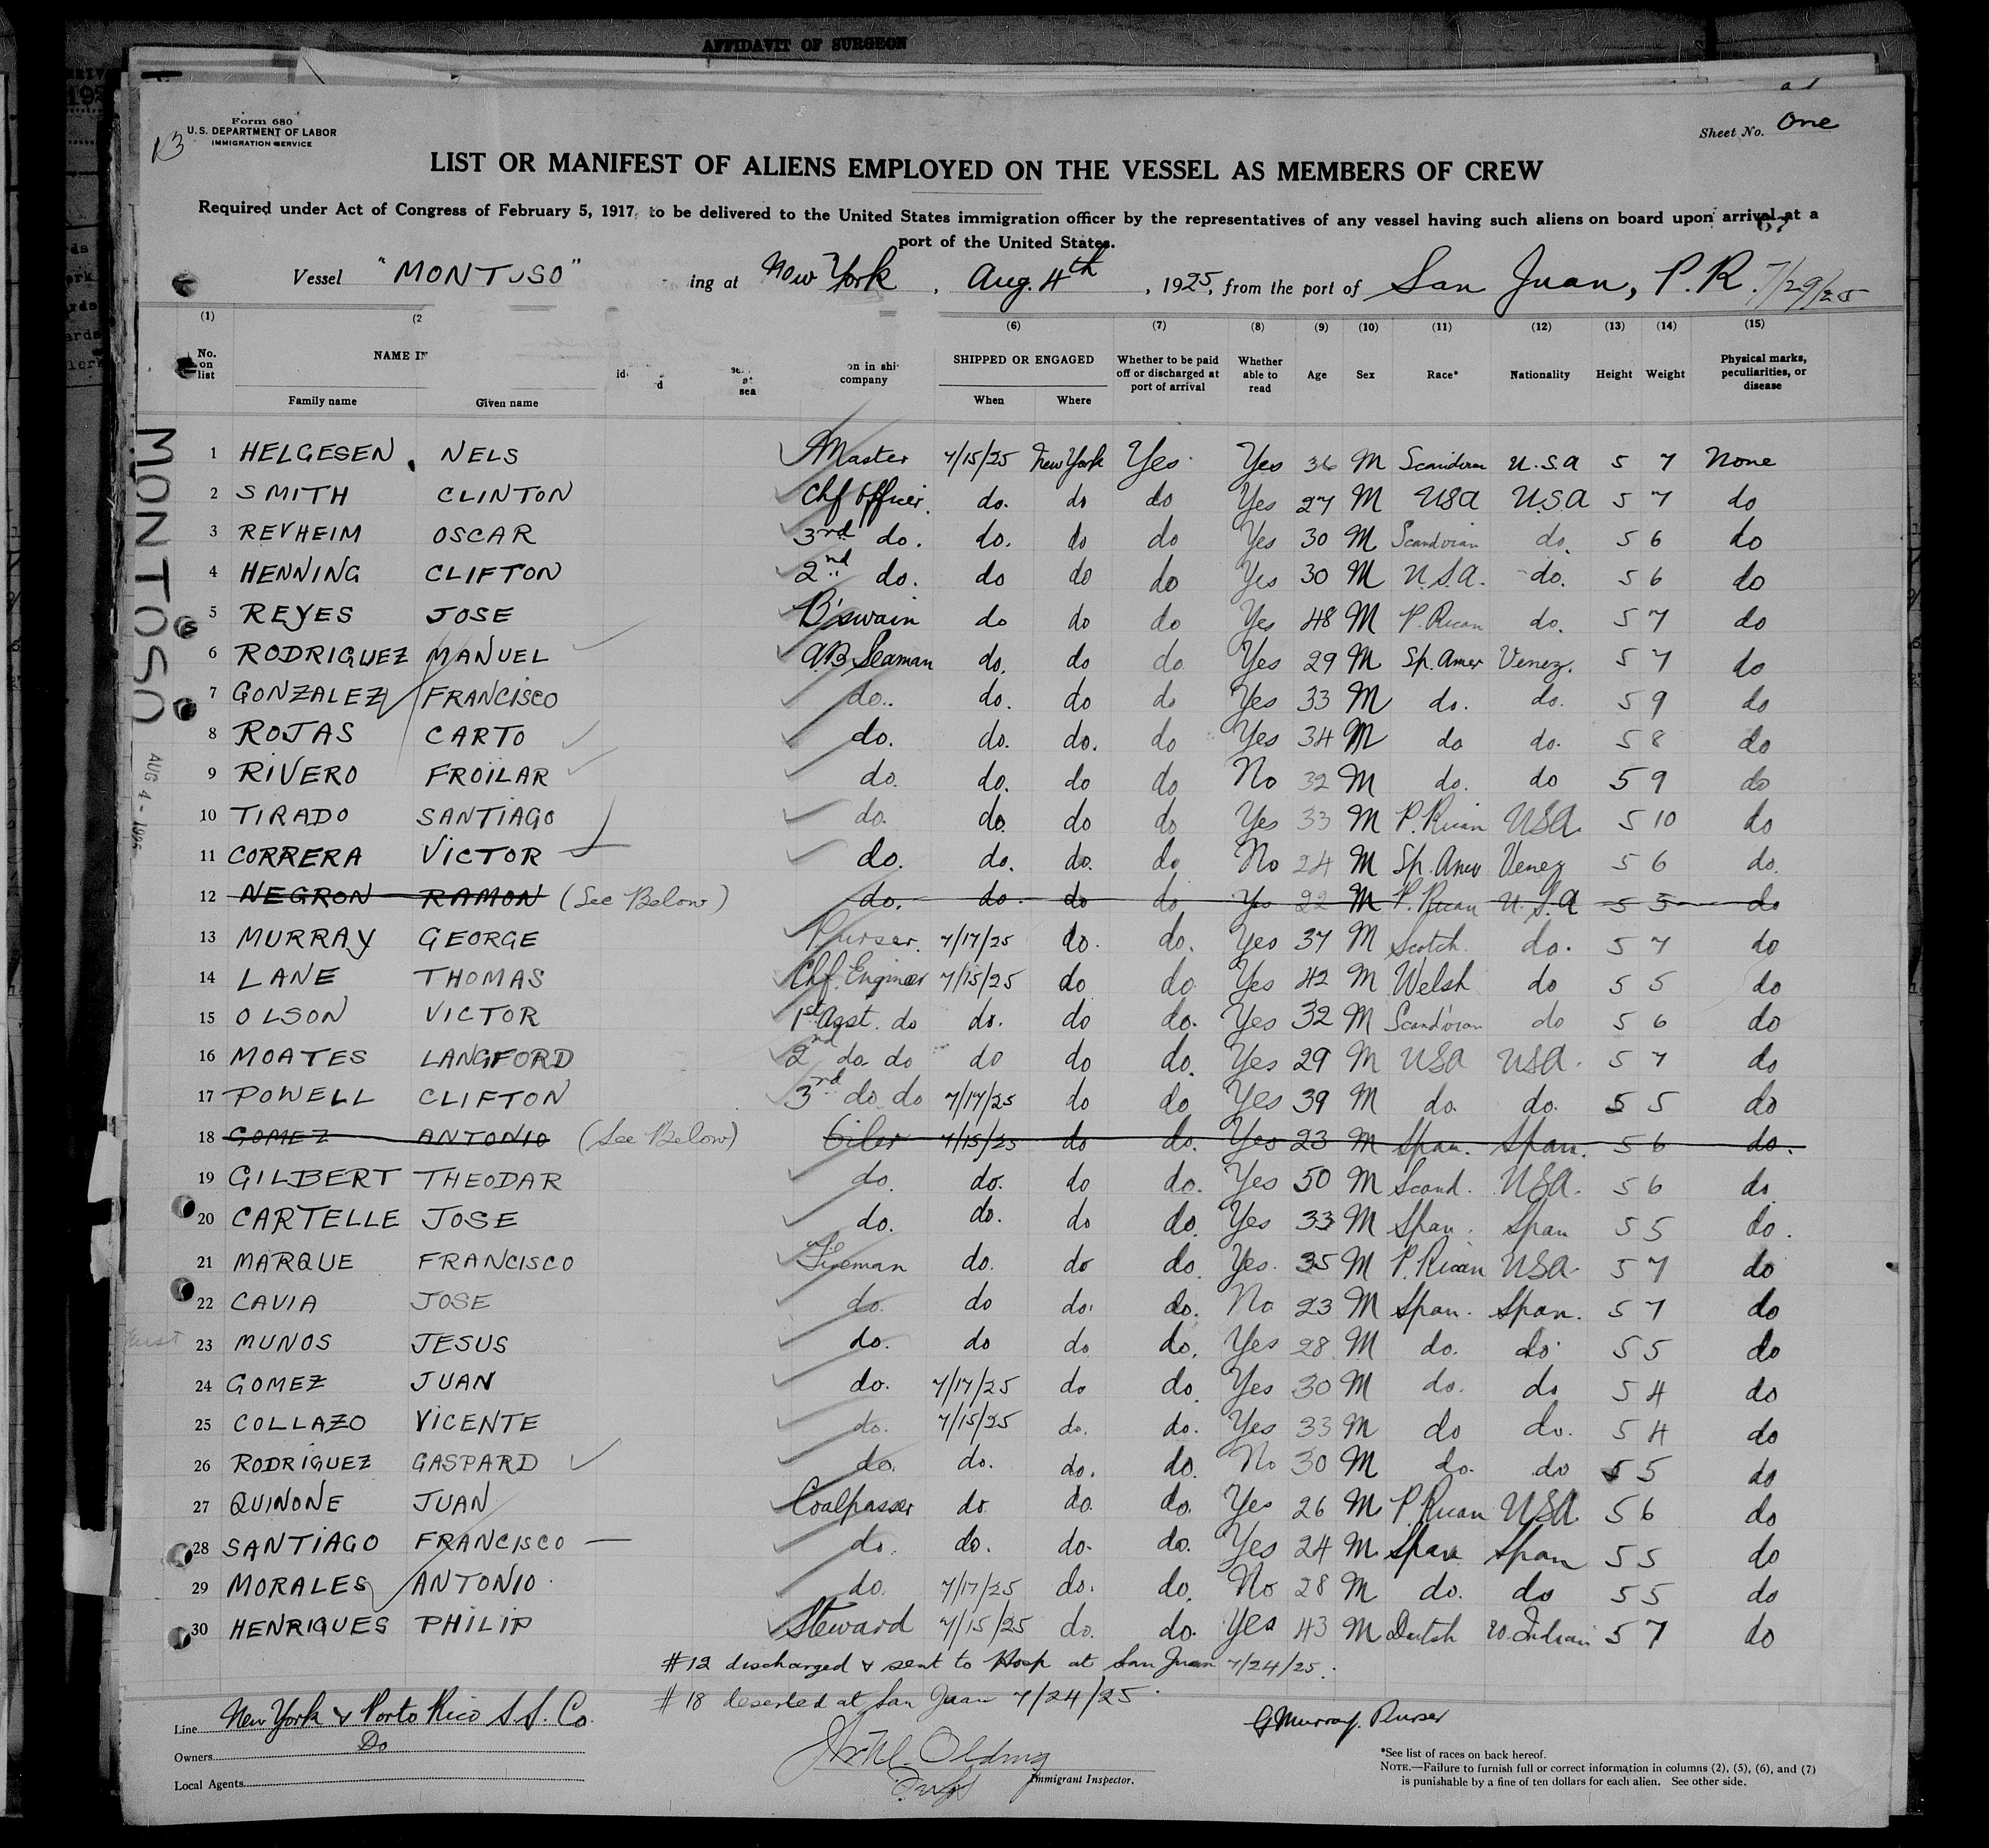 AFFIDAVIT OF SURGEON
Form 680
U.S. DEPARTMENT OF LABOR
IMMIGRATION SERVICE
Sheet No. One
LIST OR MANIFEST OF ALIENS EMPLOYED ON THE VESSEL AS MEMBERS OF CREW
Required under Act of Congress of February 5, 1917, to be delivered to the United States immigration officer by the representatives of any vessel having such aliens on board upon arrival at a
port of the United States.
67
Vessel "MONTOSO" ing at New York, Aug. 4th, 1925, from the port of San Juan, P.R. 7/29/25
(1) (2 (6) (7) (8) (9) (10) (11) (12) (13) (14) (15)
No. on list NAME IN on in shi company SHIPPED OR ENGAGED Whether to be paid off or discharged at port of arrival Whether able to read Age Sex Race* Nationality Height Weight Physical marks, peculiarities, or disease
Family name Given name sea When Where
MONTOSO
AUG 4 - 1925
1 HELGESEN, NELS Master 7/15/25 New York Yes Yes 36 M Scandvan U.S.A 5 7 None
2 SMITH CLINTON Chf Officer. do. do do Yes 27 M USA USA 5 7 do
3 REVHEIM OSCAR 3rd do. do. do do Yes 30 M Scandvian do. 5 6 do
4 HENNING CLIFTON 2nd do. do do do Yes 30 M U.S.A. do. 5 6 do
5 REYES JOSE B'swain do do do Yes 48 M P. Rican do. 5 7 do
6 RODRIGUEZ MANUEL AB Seaman do. do do Yes 29 M Sp. Amer Venez. 5 7 do
7 GONZALEZ FRANCISCO do.. do. do do Yes 33 M do. do. 5 9 do
8 ROJAS CARTO do. do. do. do Yes 34 M do do. 5 8 do
9 RIVERO FROILAR do. do. do do No 32 M do. do 5 9 do
10 TIRADO SANTIAGO do. do. do do Yes 33 M P. Rican USA. 5 10 do
11 CORRERA VICTOR do. do. do. do No 24 M Sp. Amer Venez 5 6 do.
12 NEGRON RAMON (See Below) do. do. do do Yes 22 M P. Rican U.S.A 5 5 do
13 MURRAY GEORGE Purser. 7/17/25 do. do. Yes 37 M Scotch. do. 5 7 do
14 LANE THOMAS Chf. Engineer 7/15/25 do do. Yes 42 M Welsh do 5 5 do
15 OLSON VICTOR 1st Asst. do do. do do. Yes 32 M Scand'vian do 5 6 do
16 MOATES LANGFORD 2nd do. do do do do. Yes 29 M USA USA. 5 7 do
17 POWELL CLIFTON 3rd do. do 7/17/25 do do Yes 39 M do. do. 5 5 do
18 GOMEZ ANTONIO (See Below) Oiler 7/15/25 do do. Yes 23 M Span. Span. 5 6 do.
19 GILBERT THEODAR do. do. do do. Yes 50 M Scand. USA. 5 6 do.
20 CARTELLE JOSE do. do. do do. Yes 33 M Span. Span 5 5 do.
21 MARQUE FRANCISCO Fireman do. do do. Yes. 35 M P. Rican USA. 5 7 do
22 CAVIA JOSE do. do do. do. No 23 M Span. Span. 5 7 do
23 MUNOS JESUS do. do do. do. Yes 28 M do. do. 5 5 do
24 GOMEZ JUAN do. 7/17/25 do do Yes 30 M do. do 5 4 do
25 COLLAZO VICENTE do. 7/15/25 do. do. Yes 33 M do do. 5 4 do
26 RODRIGUEZ GASPARD do. do. do. do. No 30 M do. do 5 5 do
27 QUINONE JUAN Coalpasser do. do. do. Yes 26 M P. Rican USA. 5 6 do
28 SANTIAGO FRANCISCO do. do. do. do. Yes 24 M Span Span 5 5 do
29 MORALES ANTONIO. do. 7/17/25 do. do. No 28 M do. do 5 5 do
30 HENRIQUES PHILIP Steward 7/15/25 do. do. Yes 43 M Dutch W. Indian 5 7 do
#12 discharged & sent to Hosp at San Juan 7/24/25.
#18 deserted at San Juan 7/24/25.
Line New York & Porto Rico S.S. Co.
Owners Do
Local Agents
Immigrant Inspector.
G Murray. Purser
*See list of races on back hereof.
NOTE.—Failure to furnish full or correct information in columns (2), (5), (6), and (7)
is punishable by a fine of ten dollars for each alien. See other side.